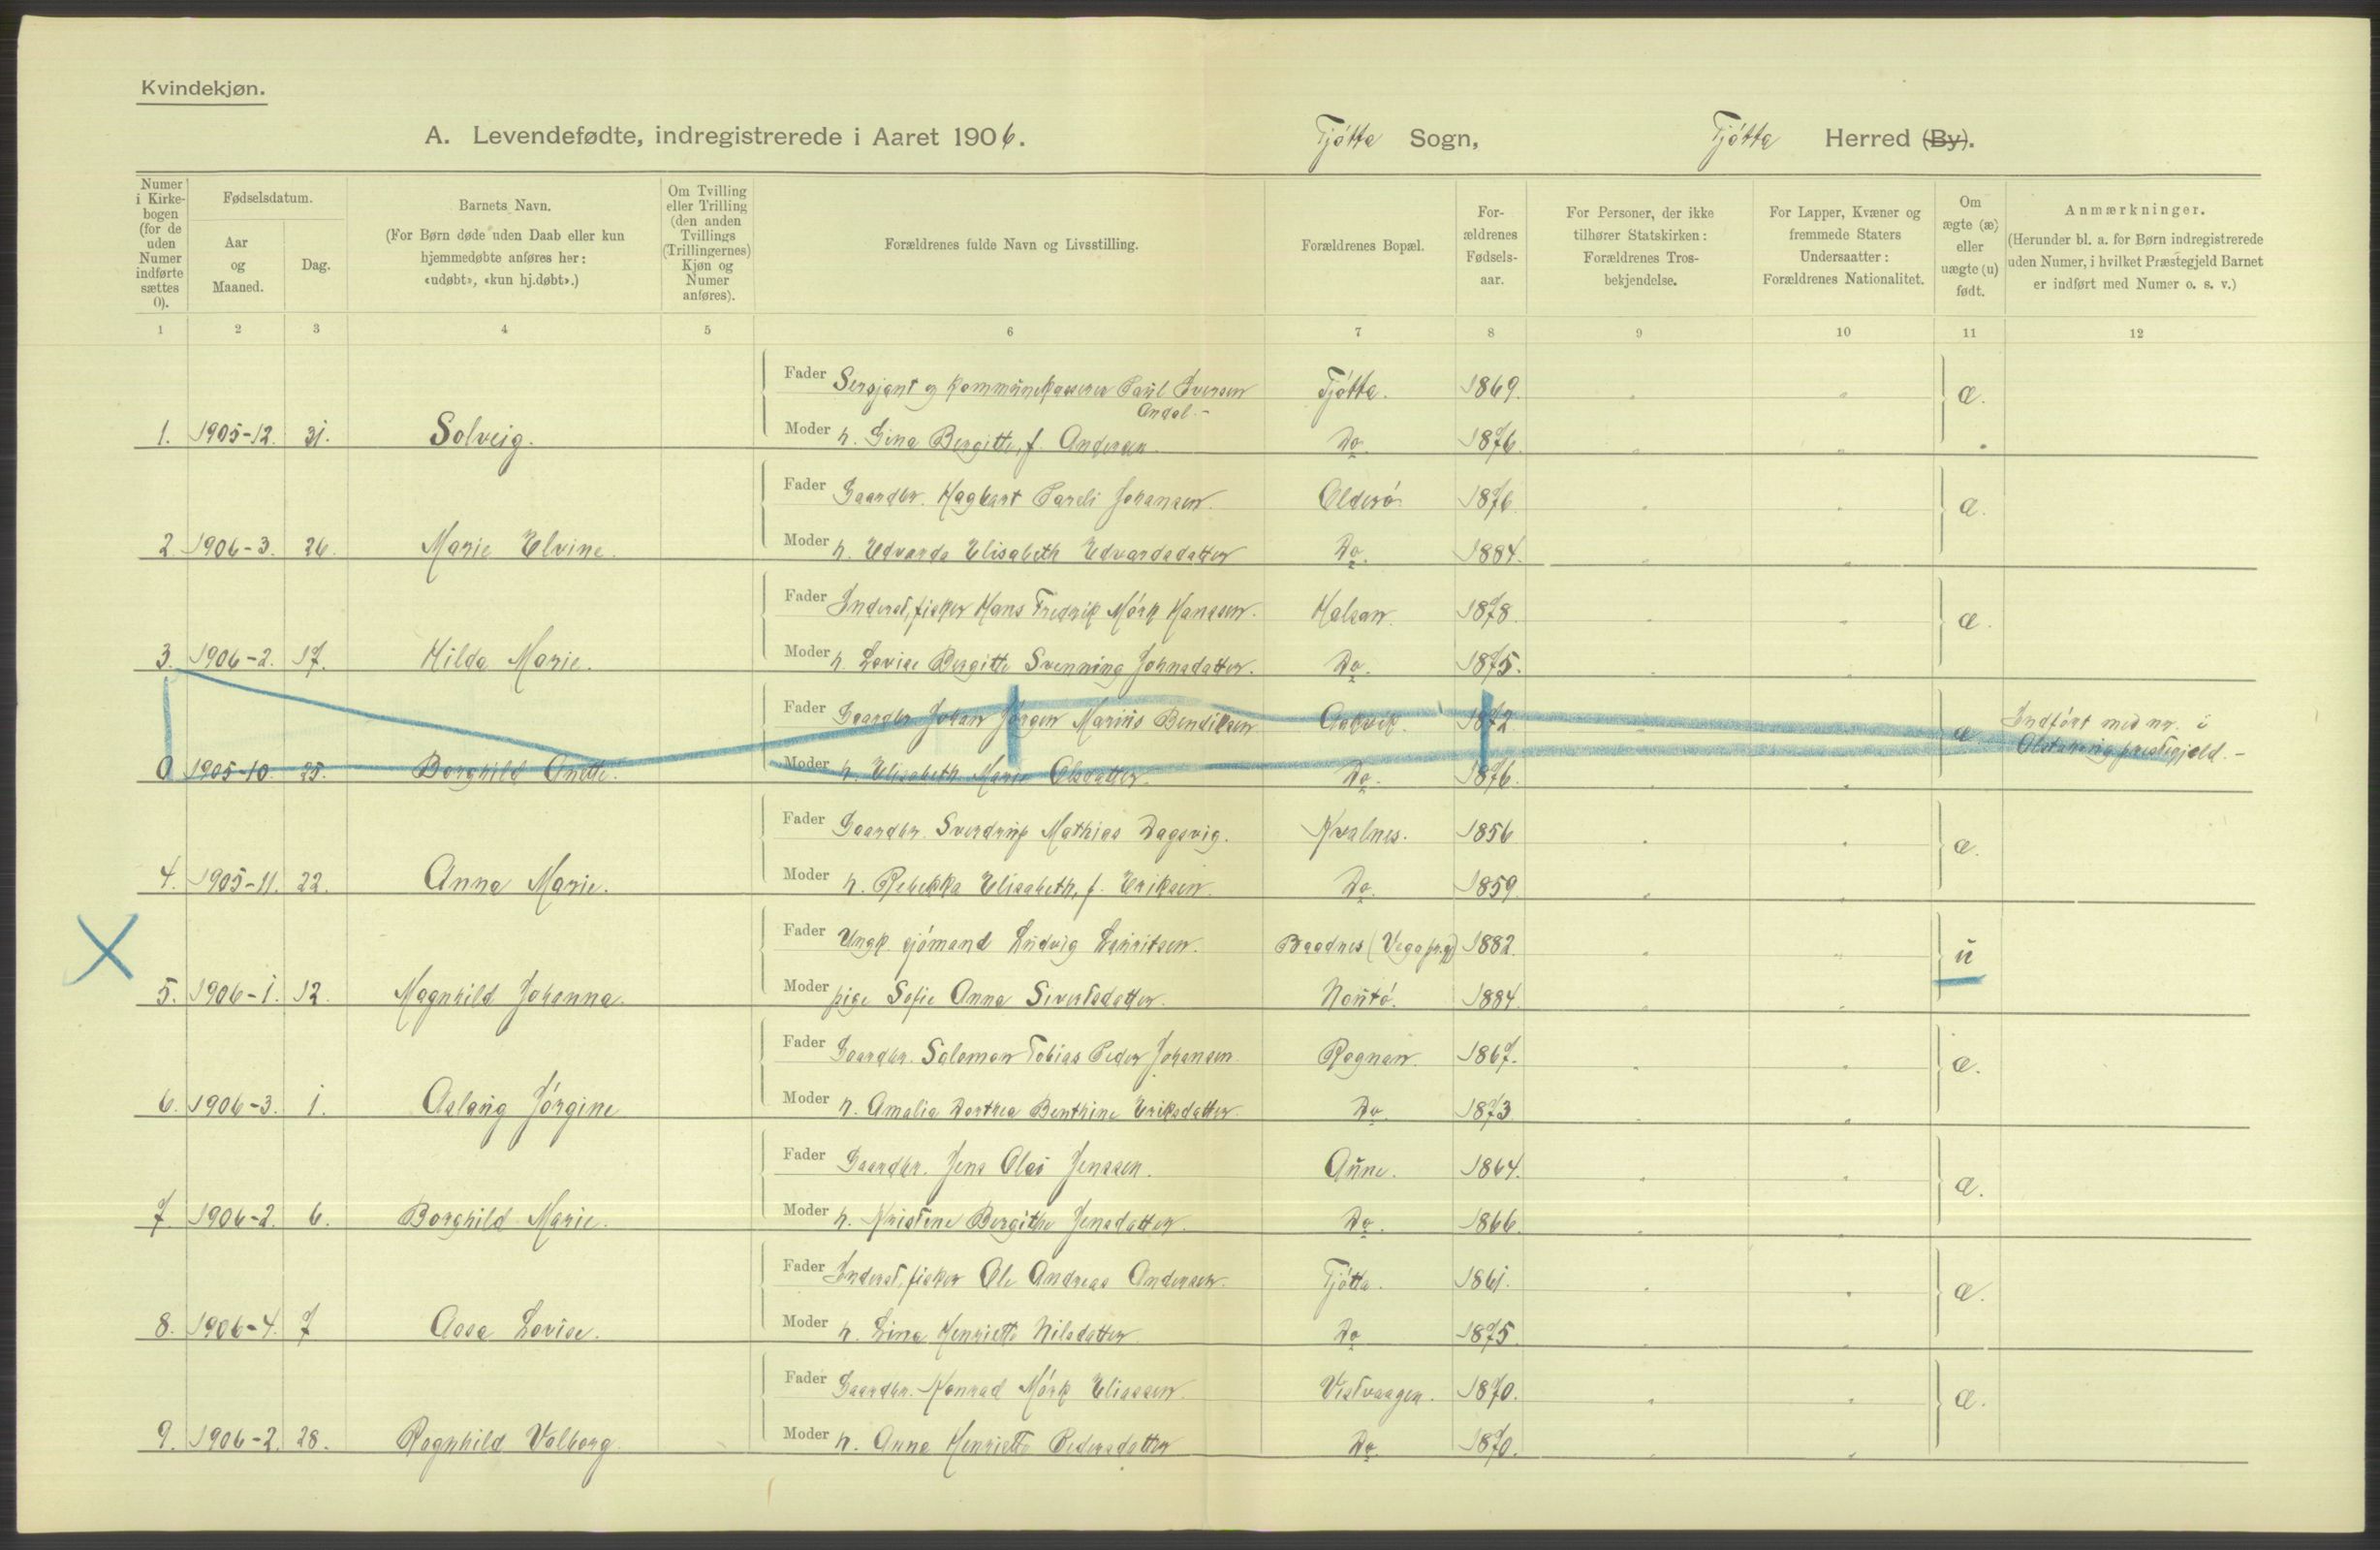 Kvindekjøn.
A. Levendefødte, indregistrerede i Aaret 1906. Tjøtta Sogn, Tjøtta Herred (By).
Numer i Kirkebogen (for de uden Numer indførte sættes 0).
Fødselsdatum.
Aar og Maaned.
Dag.
Barnets Navn.
(For Børn døde uden Daab eller kun hjemmedøbte anføres her: «udøbt», «kun hj.døbt».)
Om Tvilling eller Trilling (den anden Tvillings (Trillingernes) Kjøn og Numer anføres).
Forældrenes fulde Navn og Livsstilling.
Forældrenes Bopæl.
Forældrenes Fødselsaar.
For Personer, der ikke tilhører Statskirken: Forældrenes Trosbekjendelse.
For Lapper, Kvæner og fremmede Staters Undersaatter: Forældrenes Nationalitet.
Om ægte (æ) eller uægte (u) født.
Anmærkninger.
(Herunder bl. a. for Børn indregistrerede uden Numer, i hvilket Præstegjeld Barnet er indført med Numer o. s. v.)
1 2 3 4 5 6 7 8 9 10 11 12
Fader Sersjant og kommunekasserer Paul Iversen Tjøtta. 1869. æ.
Andal.-
1. 1905-12. 31. Solveig. Moder h. Gina Bergitte, f. Andersen. Do. 1876.
Fader Gaardbr. Hagbart Pareli Johansen. Olderø 1876. æ.
2 1906-3. 26. Marie Elvine. Moder h. Edvarda Elisabeth Edvardsdatter Do. 1884.
Fader Inderst, fisker Hans Fredrik Mørk Hanssen. Halsan. 1878. æ.
3. 1906-2. 17. Hilda Marie. Moder h. Lovise Bergitte Svenning Johnsdatter. Do. 1875.
Fader Gaardbr. Johan Jørgen Marius Bendiksen Aakvik. 1872 æ Indført med nr. i
0 1905-10. 25. Borghild Anette. Moder h. Elisabeth Marie Olsdatter. Do. 1876. Alstahaug prestegjeld.-
Fader Gaardbr. Sverdrup Mathias Dagsvig. Kvalnes. 1856 æ.
4. 1905-11. 22. Anna Marie. Moder h. Rebekka Elisabeth, f. Eriksen. Do. 1859.
Fader Ungk. sjømand Ludvig Lauritsen. Baadnes (Vega pr.gj) 1882. u
5. 1906-1. 12. Magnhild Johanna. Moder pige Sofie Anna Sivertsdatter. Nautø. 1884.
Fader Gaardbr. Salomon Tobias Peder Johansen Rognan. 1867. æ.
6. 1906-3. 1. Aslaug Jørgine Moder h. Amalia Dorthea Benthine Eriksdatter Do. 1873
Fader Gaardbr. Jens Olai Jenssen. Aune. 1864. æ.
7. 1906-2. 6. Borghild Marie. Moder h. Kristene Bergithe Jensdatter. Do. 1866.
Fader Inderst, fisker Ole Andreas Andersen. Tjøtta. 1861. æ.
8. 1906-4. 7 Aasa Lovise. Moder h. Lina Henriette Nilsdatter Do 1875.
Fader Gaardbr. Konrad Mørk Eliassen. Vestvaagen. 1870. æ.
9. 1906-2. 28. Ragnhild Valborg. Moder h. Anna Henriette Pedersdatter Do. 1870.